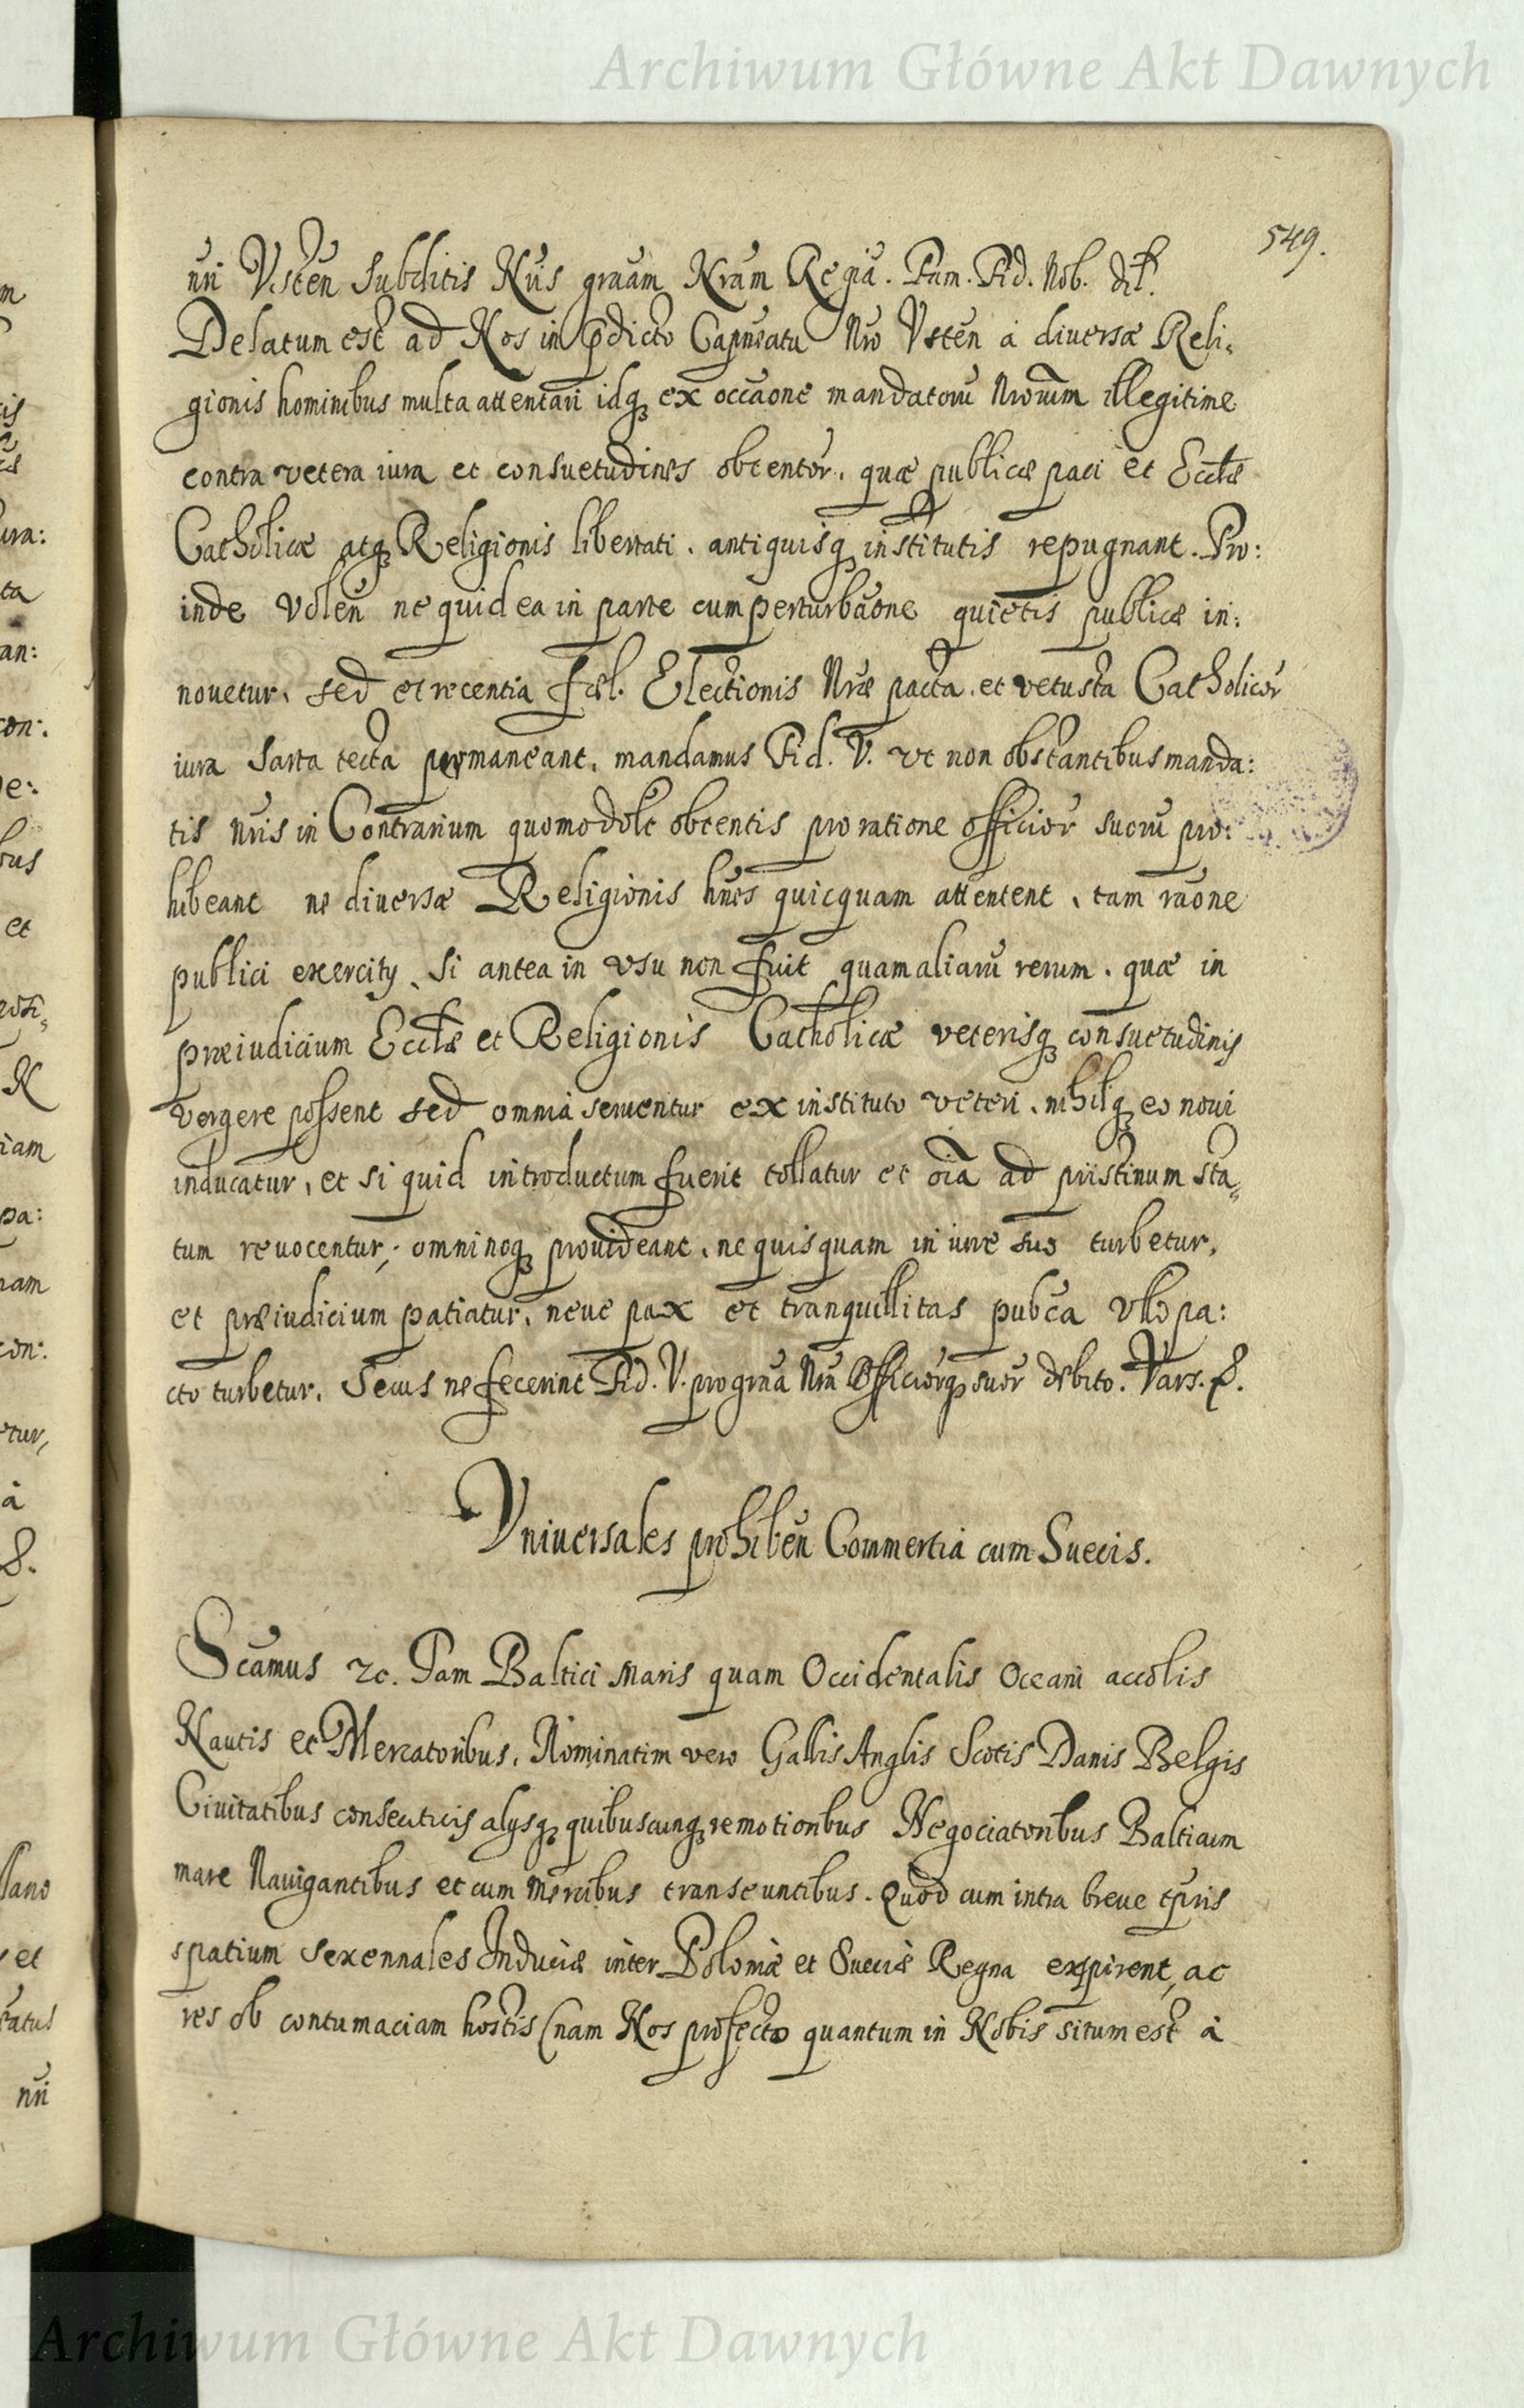 Archiwum Główne Akt Dawnych
549.
nri Vsten subditis Nris gratiam Nram Regia. Fam. Fid. Nob. dil.
Delatum est ad Nos in pdicto Capneatu Nro Vsten à diuersæ Reli,
gionis hominibus multa attentari idq ex occãone mandatorũ Nrorum illegitime
contra vetera iura et consuetudines obtentor. quæ publicæ paci et Eccłæ
Catholicæ atq Religionis libertati. antiquisq institutis repugnant. Pro:
inde Volen ne quid ea in parte cum perturbãone quietis publicæ in:
nouetur, sed et recentia fæl. Electionis Nræ pacta. et vetusta Catholicor
iura Sarta tecta permaneant, mandamus Fid. V. vt non obstantibus manda:
tis nris in Contrarium quomodolt obtentis pro ratione officior suorũ pro:
hibeant ne diuersæ Religionis hnes quicquam attentent, tam rãone
publici exercity, si antea in vsu non fuit quam aliarũ rerum. quæ in
præiudicium Eccłæ et Religionis Catholicæ veterisq consuetudinis
vergere possent sed omnia seruentur ex instituto veteri, nihilq eo noui
inducatur, et si quid introductum fuerit tollatur et oĩa ad pristinum sta„
tum reuocentur; omninoq prouideant, ne quisquam in iure suo turbetur,
et præiudicium patiatur, neue pax et tranquillitas pubca vllo pa:
cto turbetur. Secus ne fecerint Fid. V. pro grãa Nra Officiorq suor debito. Vars. &.
Vniuersales prohiben Commertia cum Suecis.
Scamus &c. Tam Baltici Maris quam Occidentalis Oceani accolis
Nautis et Mercatoribus, Nominatim vero Gallis Anglis Scotis Danis Belgis
Ciuitatibus alysq quibuscunq remotioribus Negociatoribus Balticum
mare Nauigantibus et cum Mercibus transeuntibus. Quod cum intra breue tpris
spatium sexennales Induciæ inter Poloniæ et Sueciæ Regna expirent, ac
res ob contumaciam hostis (nam Nos profecto quantum in Nobis situm est à
nri
Archiwum Główne Akt Dawnych